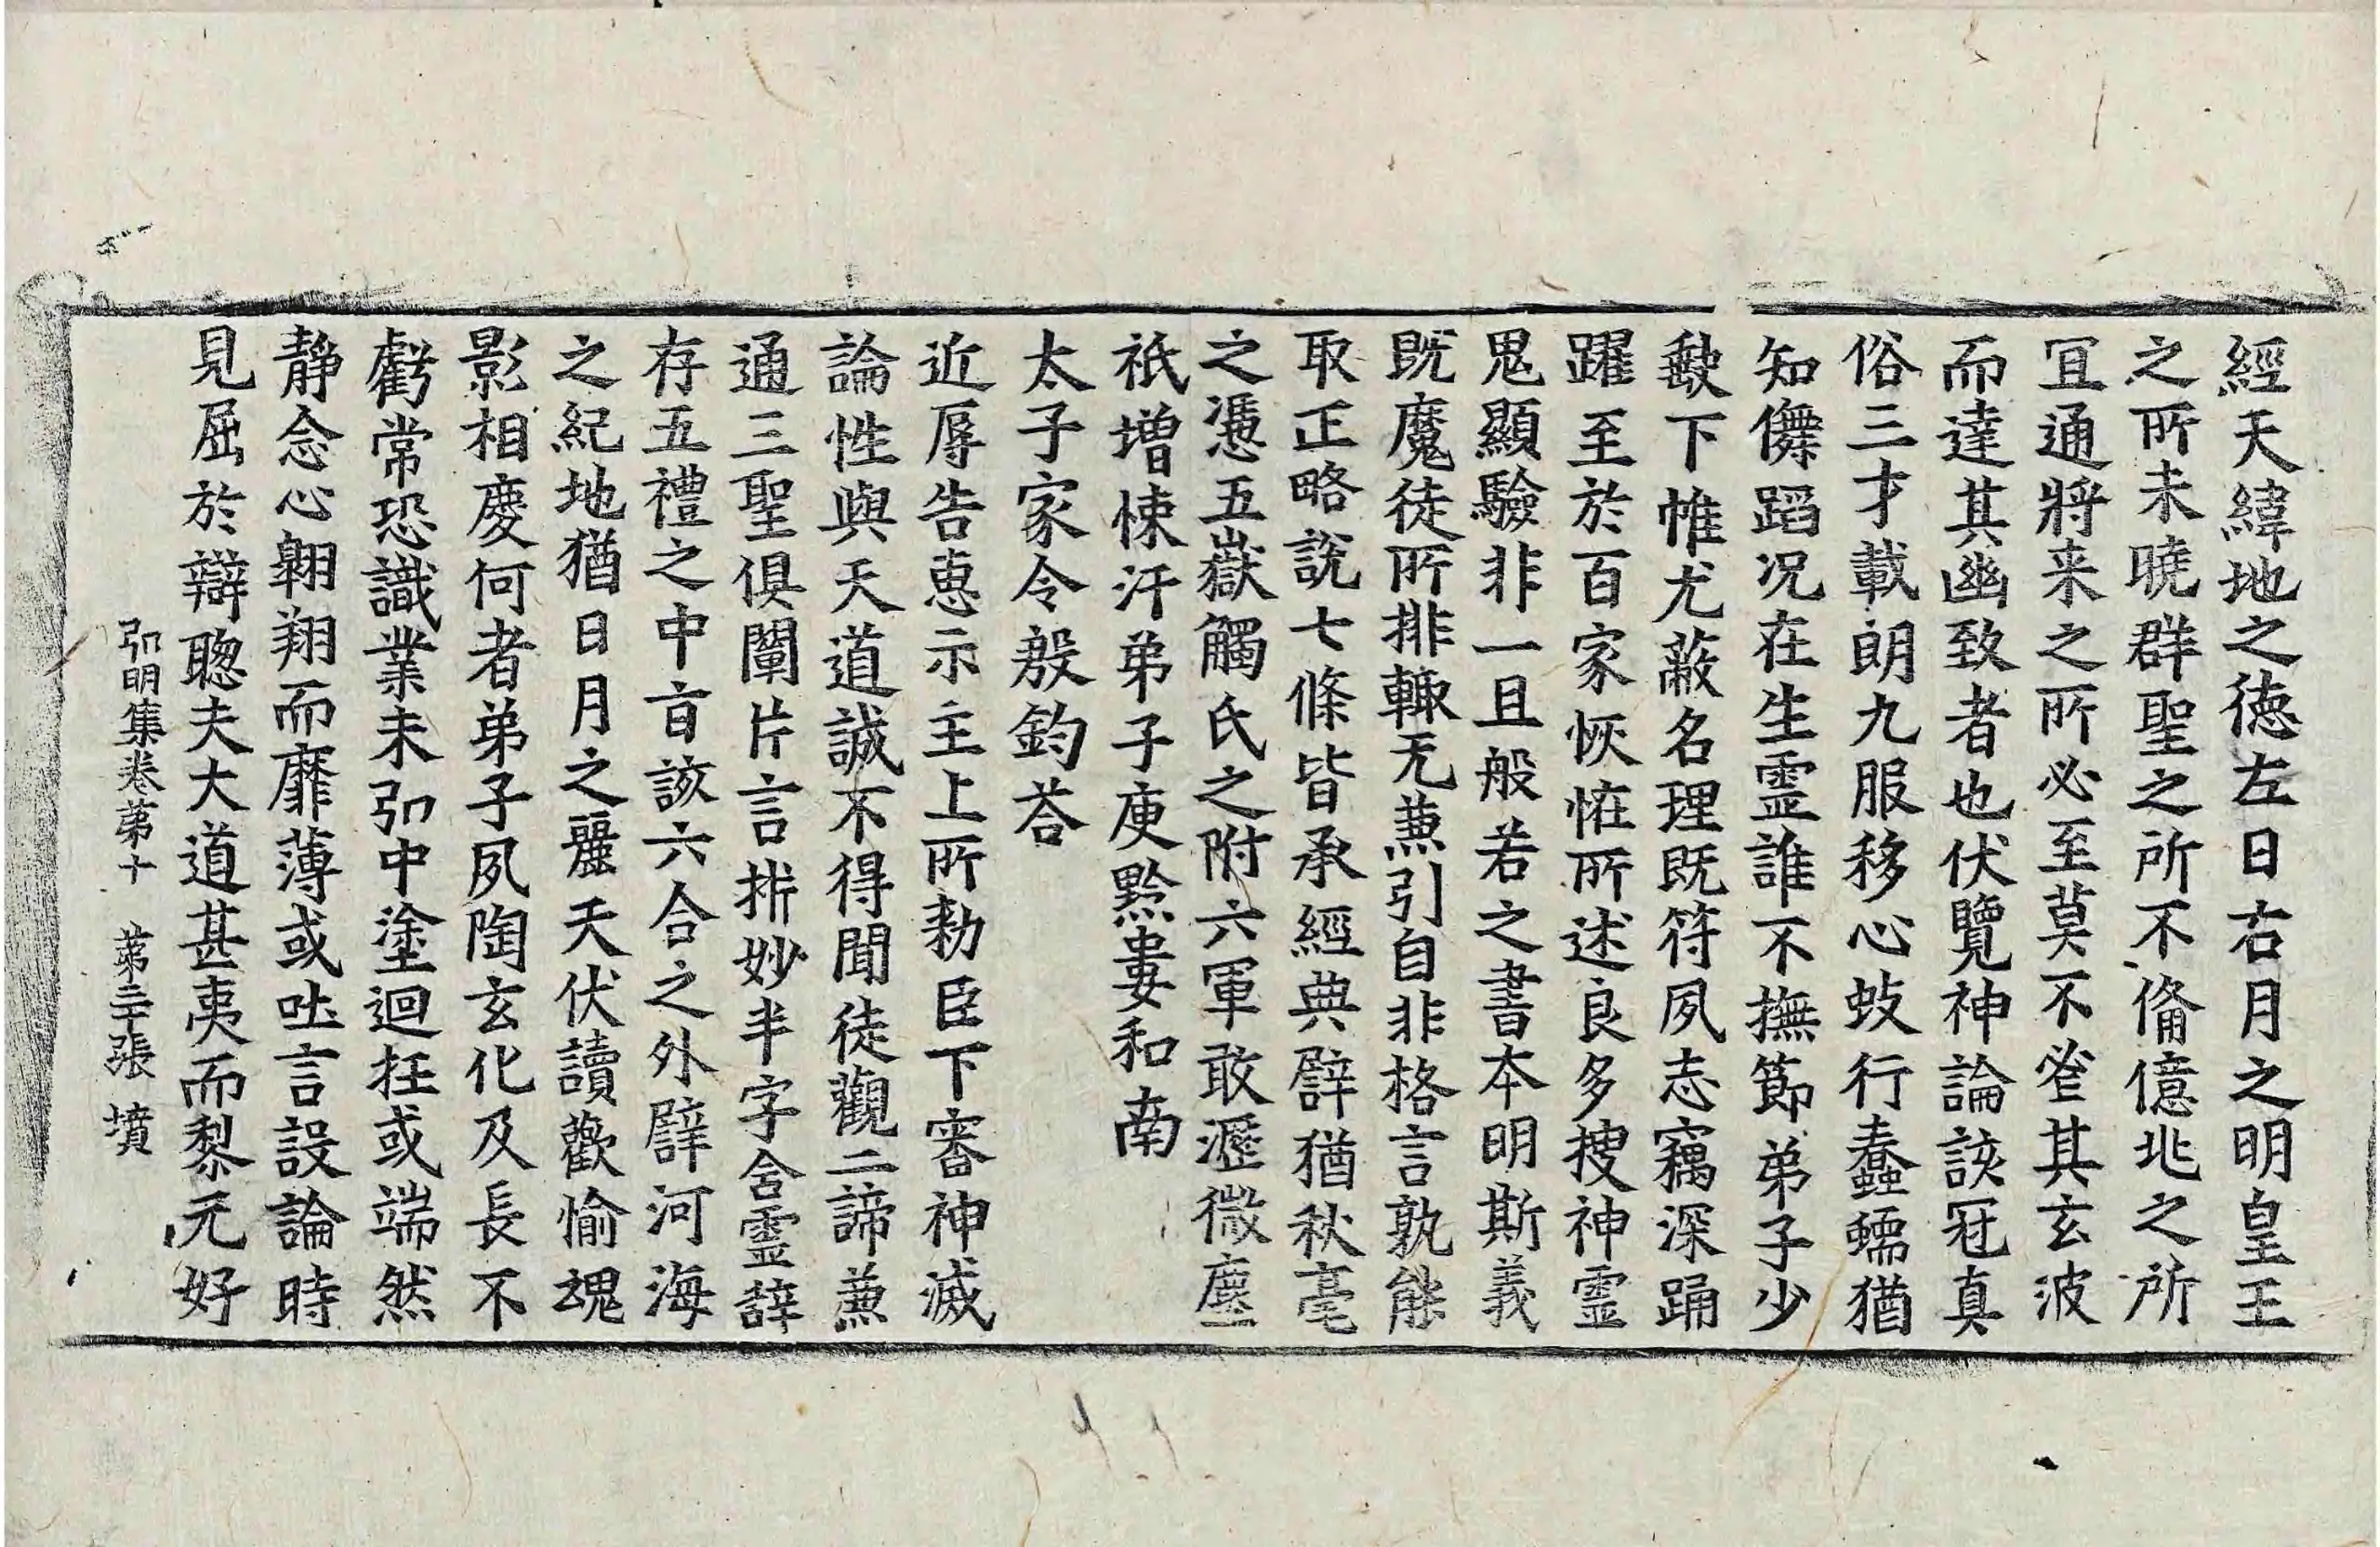 經天緯地之德左日右月之明皇王
之所未曉群聖之所不俻億兆之所
冝通將来之所必至莫不詧其玄波
而達其幽致者也伏覽神論該冠真
俗三才載朗九服移心蚑行蠢蠕猶
知儛蹈况在生霊誰不撫節弟子少
缺下帷尤蔽名理既符夙志竊深踊
躍至於百家恢恠所述良多搜神霊
鬼顯驗非一且般若之書本明斯義
既魔徒所排輙无兼引自非格言孰能
取正略說七條皆承經典譬猶秋毫
之憑五嶽觸氏之附六軍敢瀝微塵
祇增悚汗弟子庾黔婁和南
太子家令殷鈞荅
近辱告惠示主上所勑臣下審神滅
論性與天道誠不得聞徒觀二諦兼
通三聖俱闡片言析妙半字含霊辞
存五禮之中㫖該六合之外譬河海
之紀地猶日月之麗天伏讀歡愉魂
影相慶何者弟子夙陶玄化及長不
虧常恐識業未弘中塗迴抂或端然
静念心翱翔而靡薄或吐言設論時
見屈於辯聰夫大道甚夷而黎元好
弘明集卷第十　第三十張　墳